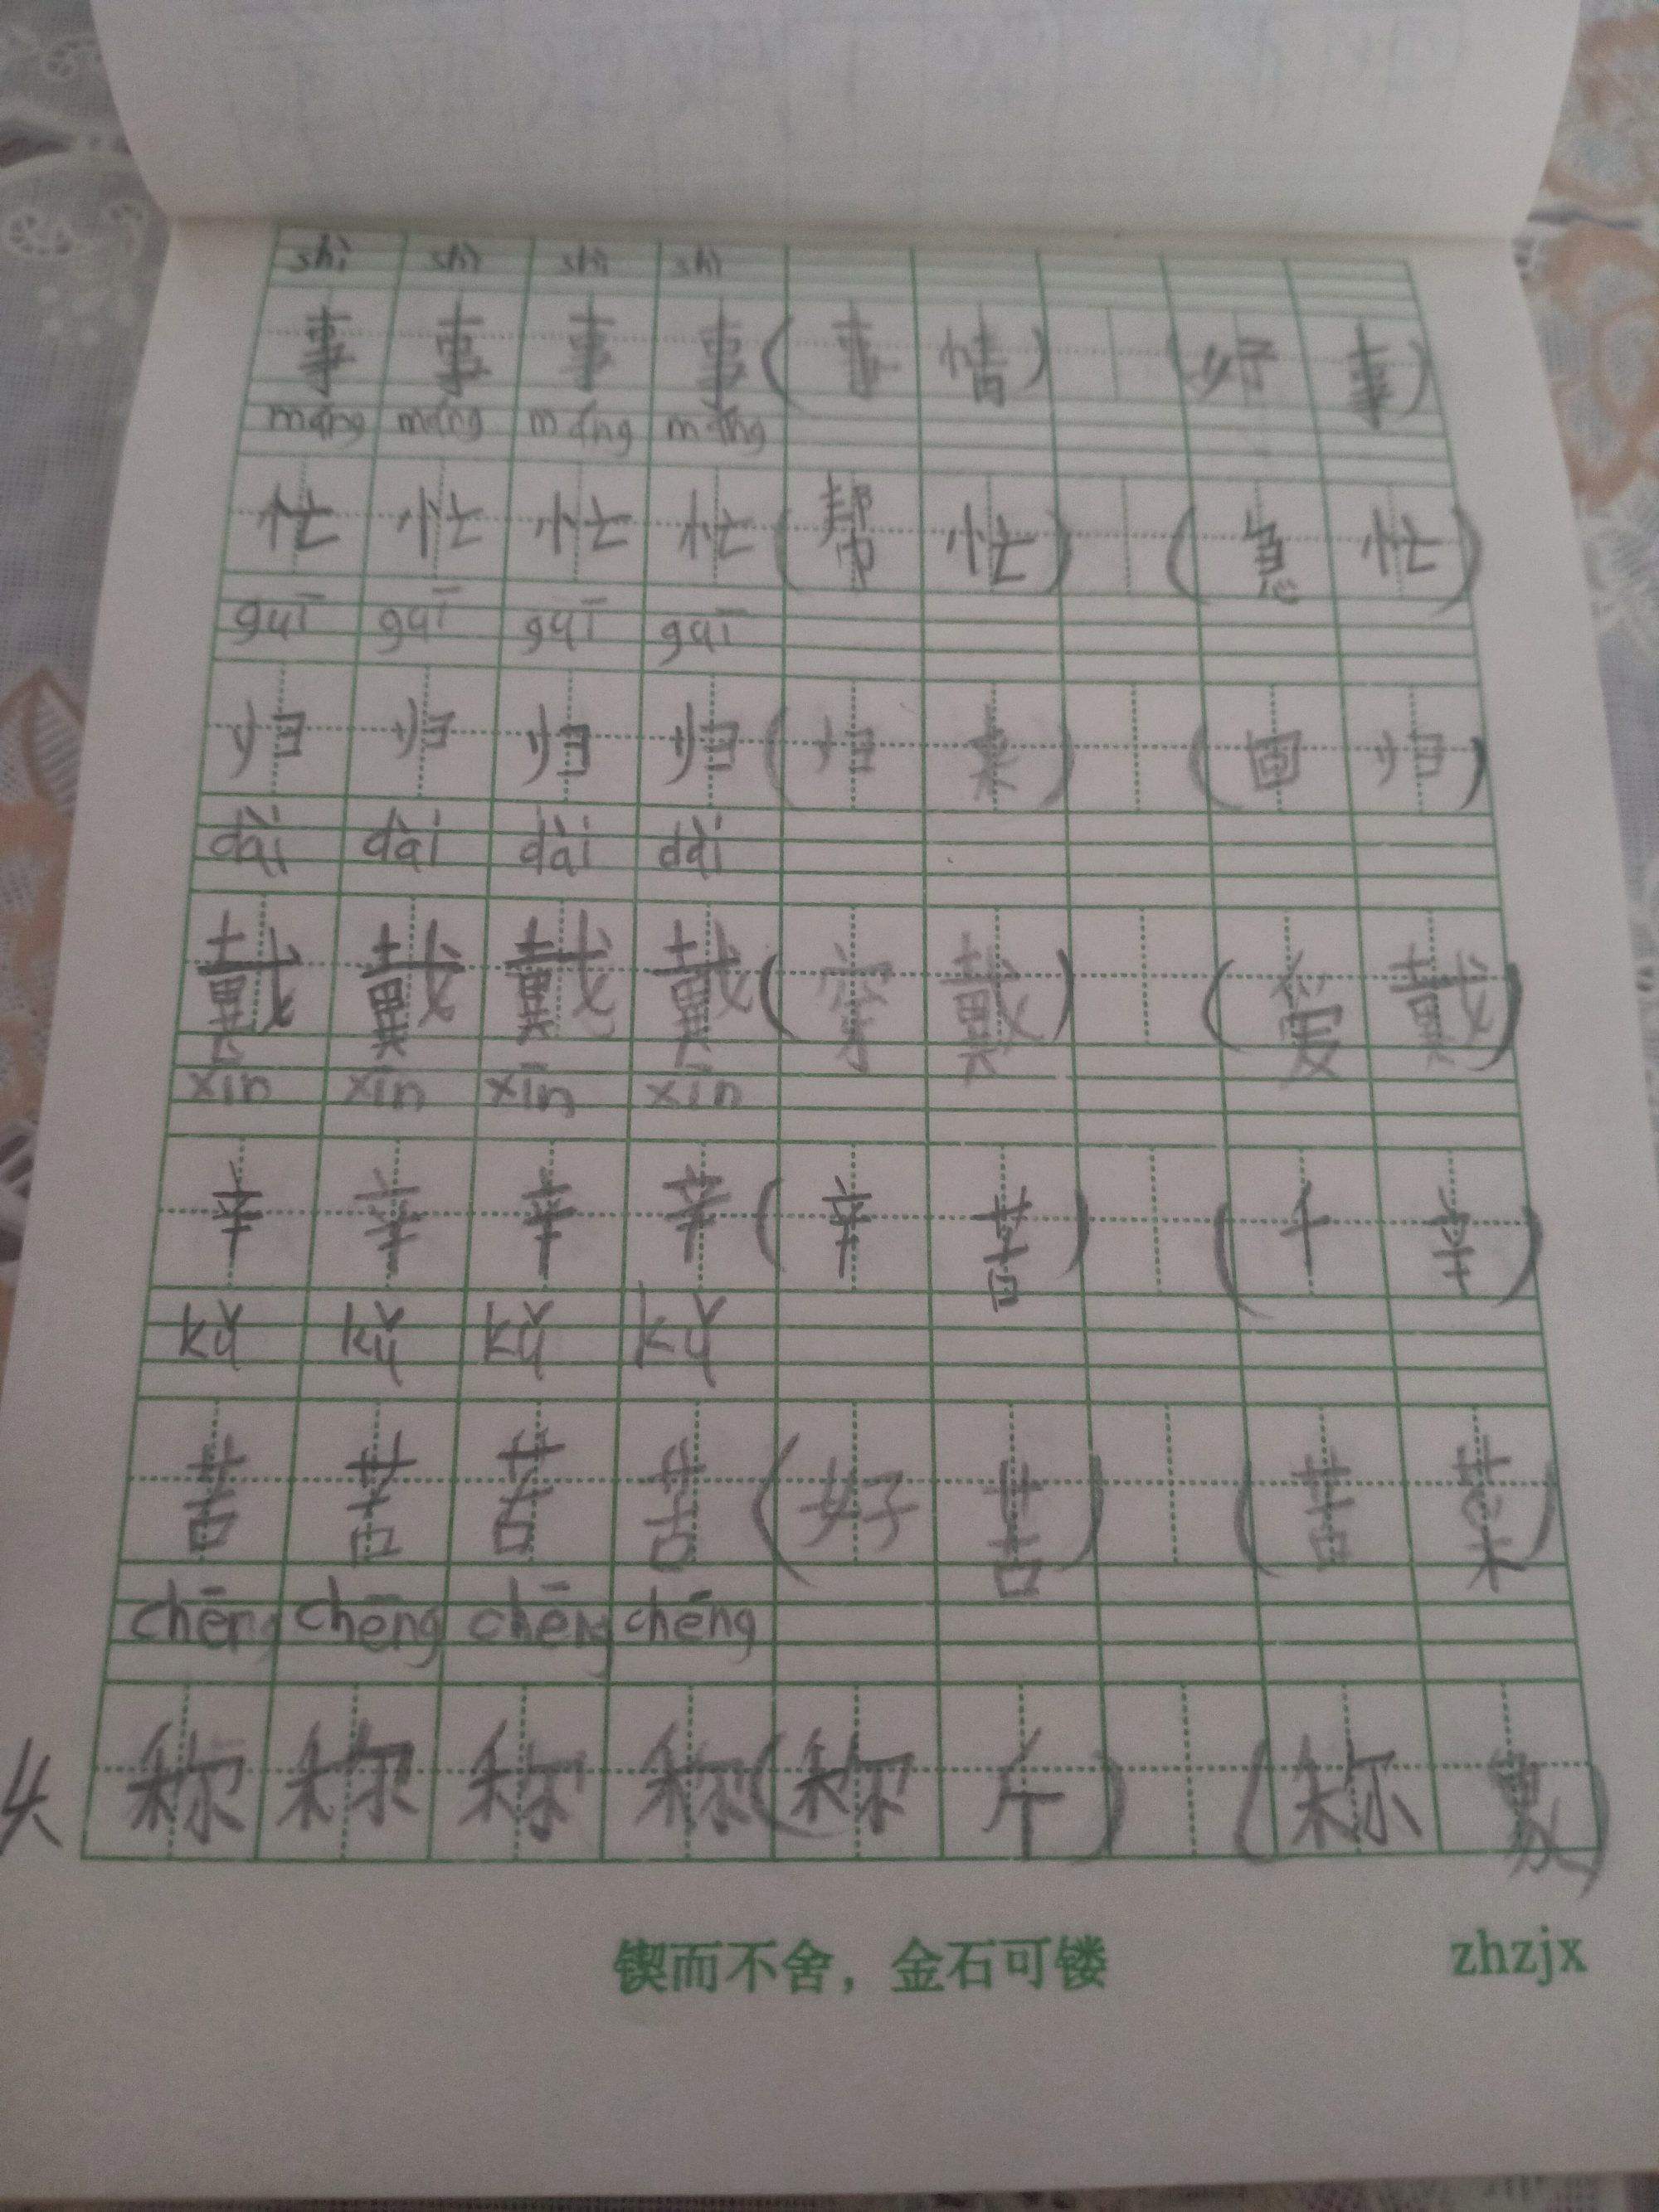 shì shì shì shì
事 事 事 事 (事 情) (好 事)
máng máng máng máng
忙 忙 忙 忙 (帮 忙) (急 忙)
guī guī guī guī
归 归 归 归 (归 来) (回 归)
dài dài dài dài
戴 戴 戴 戴 (穿 戴) (爱 戴)
xīn xīn xīn xīn
辛 辛 辛 辛 (辛 苦) (千 辛)
kǔ kǔ kǔ kǔ
苦 苦 苦 苦 (好 苦) (苦 菜)
chēng chēng chēng chēng
称 称 称 称 (称 斤) (称 象)
锲而不舍，金石可镂 zhzjx